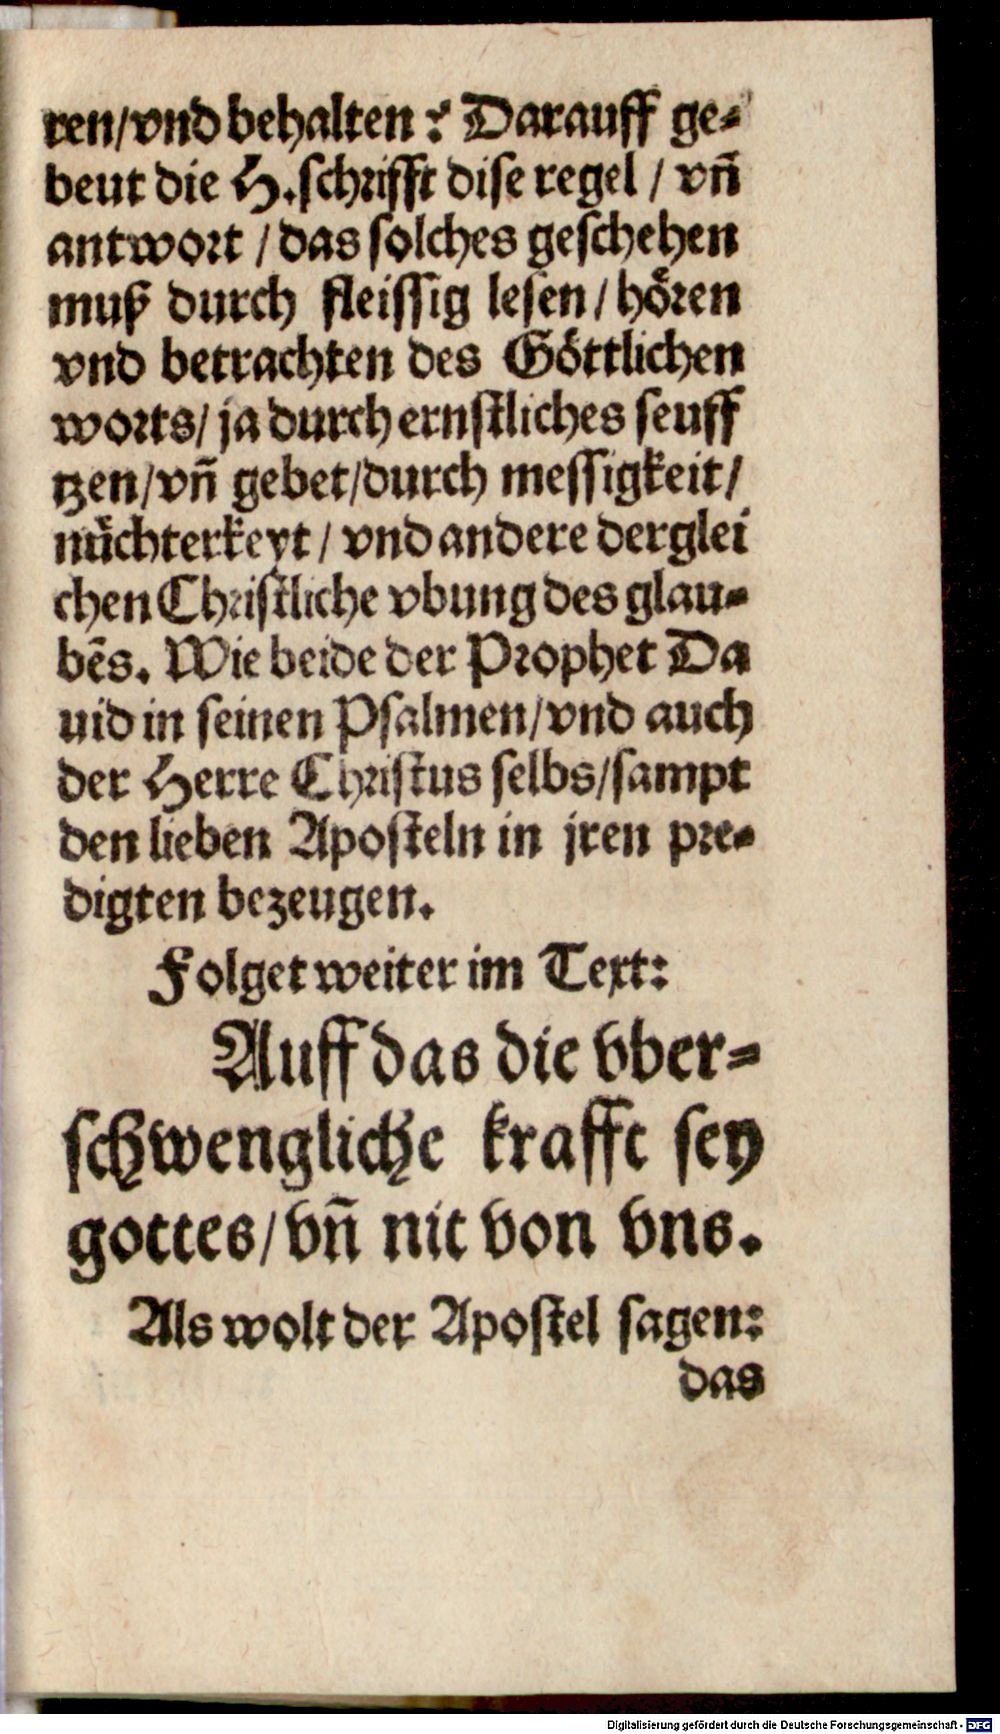 ren/vnd behalten? Darauff ge-
beut die H. schrifft dise regel / vñ
antwort / das solches geschehen
muß durch fleissig lesen / hören
vnd betrachten des Göttlichen
worts/ ja durch ernstliches seuff
tzen/vñ gebet/durch messigkeit/
nüchterkeyt / vnd andere derglei
chen Christliche vbung des glau-
bēs. Wie beide der Prophet Da
uid in seinen Psalmen/vnd auch
der Herre Christus selbs/sampt
den lieben Aposteln in jren pre-
digten bezeugen.
Folget weiter im Text:
Auff das die vber-
schwengliche krafft sey
gottes/vñ nit von vns.
Als wolt der Apostel sagen:
das
Digitalisierung gefördert durch die Deutsche Forschungsgemeinschaft - DFG